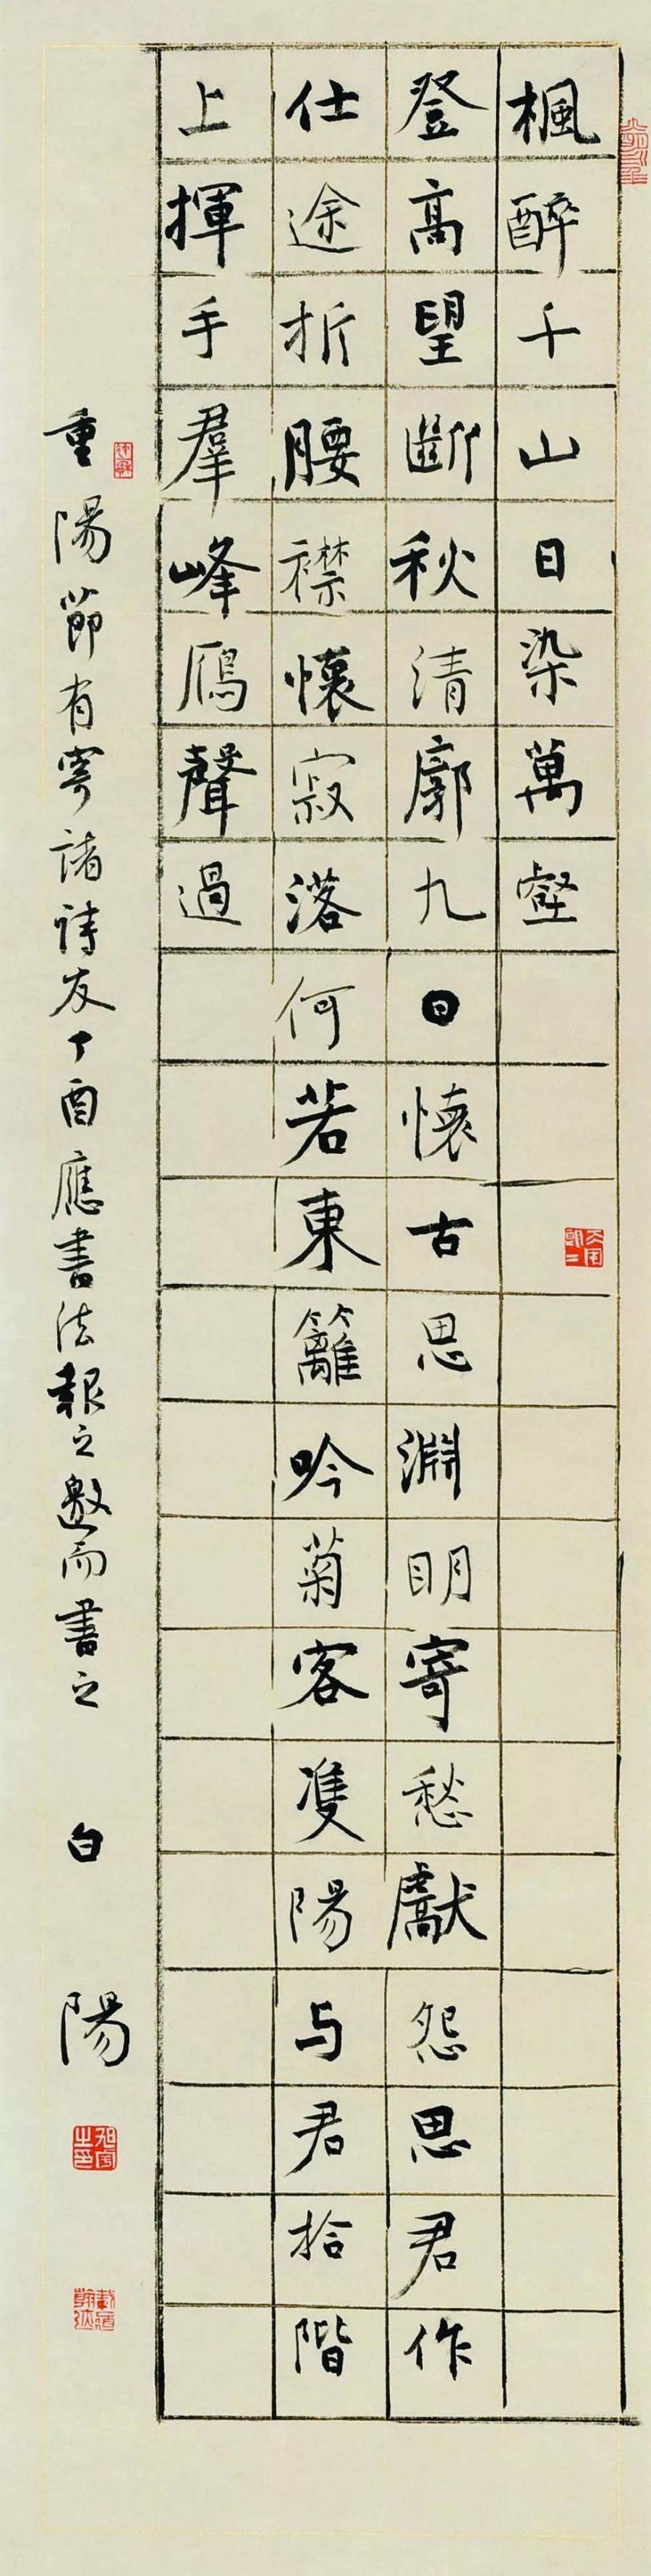 楓醉千山日染萬壑
登高望斷秋清廓九日懷古思淵明寄愁獻怨思君作
仕途折腰襟懷寂落何若東籬吟菊客隻陽与君拾階
上揮手羣峰鴈聲過
重陽節有寄諸詩友丁酉應書法報之邀而書之 白陽